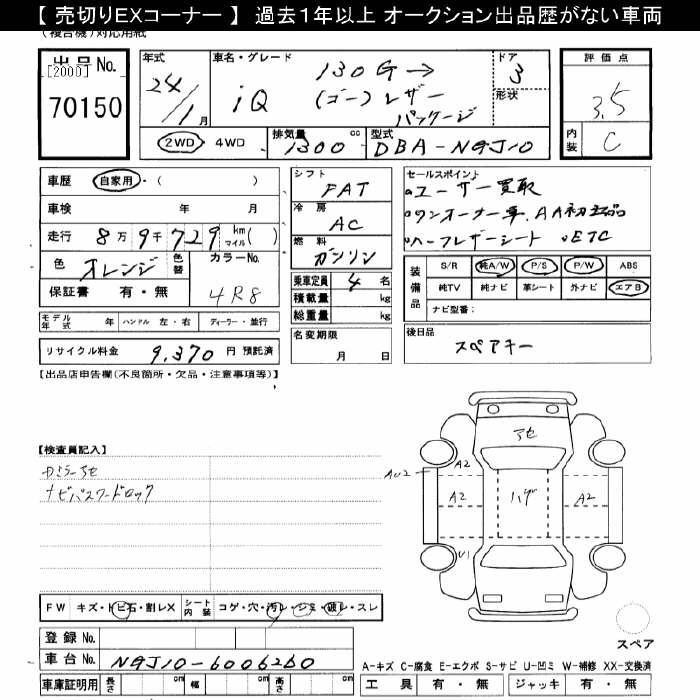 【 売切りEXコーナー 】 過去1年以上 オークション出品歴がない車両
(複合機)対応用紙
出品No.
[2000]
70150
年式
24/1月
車名・グレード
iQ
130G→
(ゴー)レザーパッケージ
ドア
3
形状
評価点
3.5
内装
C
2WD ・ 4WD
排気量
1300 cc
型式
DBA-NGJ10
車歴 自家用・( )
車検 年 月
走行 8万9千729 km マイル( )
色 オレンジ 色替
カラーNo.
4R8
保証書 有・無
モデル年式 年 ハンドル 左・右 ディーラー・並行
リサイクル料金 9,370 円 預託済
シフト
FAT
冷房
AC
燃料
ガソリン
乗車定員 4 名
積載量 kg
総重量 kg
名変期限
月 日
セールスポイント
•ユーザー買取
•ワンオーナー車、AA初出品
•ハーフレザーシート •ETC
装備品
S/R 純A/W P/S P/W ABS
純TV 純ナビ 革シート 外ナビ エアB
ナビ型番:
後日品
スペアキー
【出品店申告欄(不良箇所・欠品・注意事項等)】
【検査員記入】
ナビパスワードロック
アセ
A2
A2
ハゲ
A2
U1
スペア
FW キズ・トビ石・割レX シート内装 コゲ・穴・汚レ・シミ・破レ・スレ
登録 No.
車台 No. NGJ10-6006260
車庫証明用 長さ cm 幅 cm 高さ cm
A-キズ C-腐食 E-エクボ S-サビ U-凹ミ W-補修 XX-交換済
工具 有・無 ジャッキ 有・無